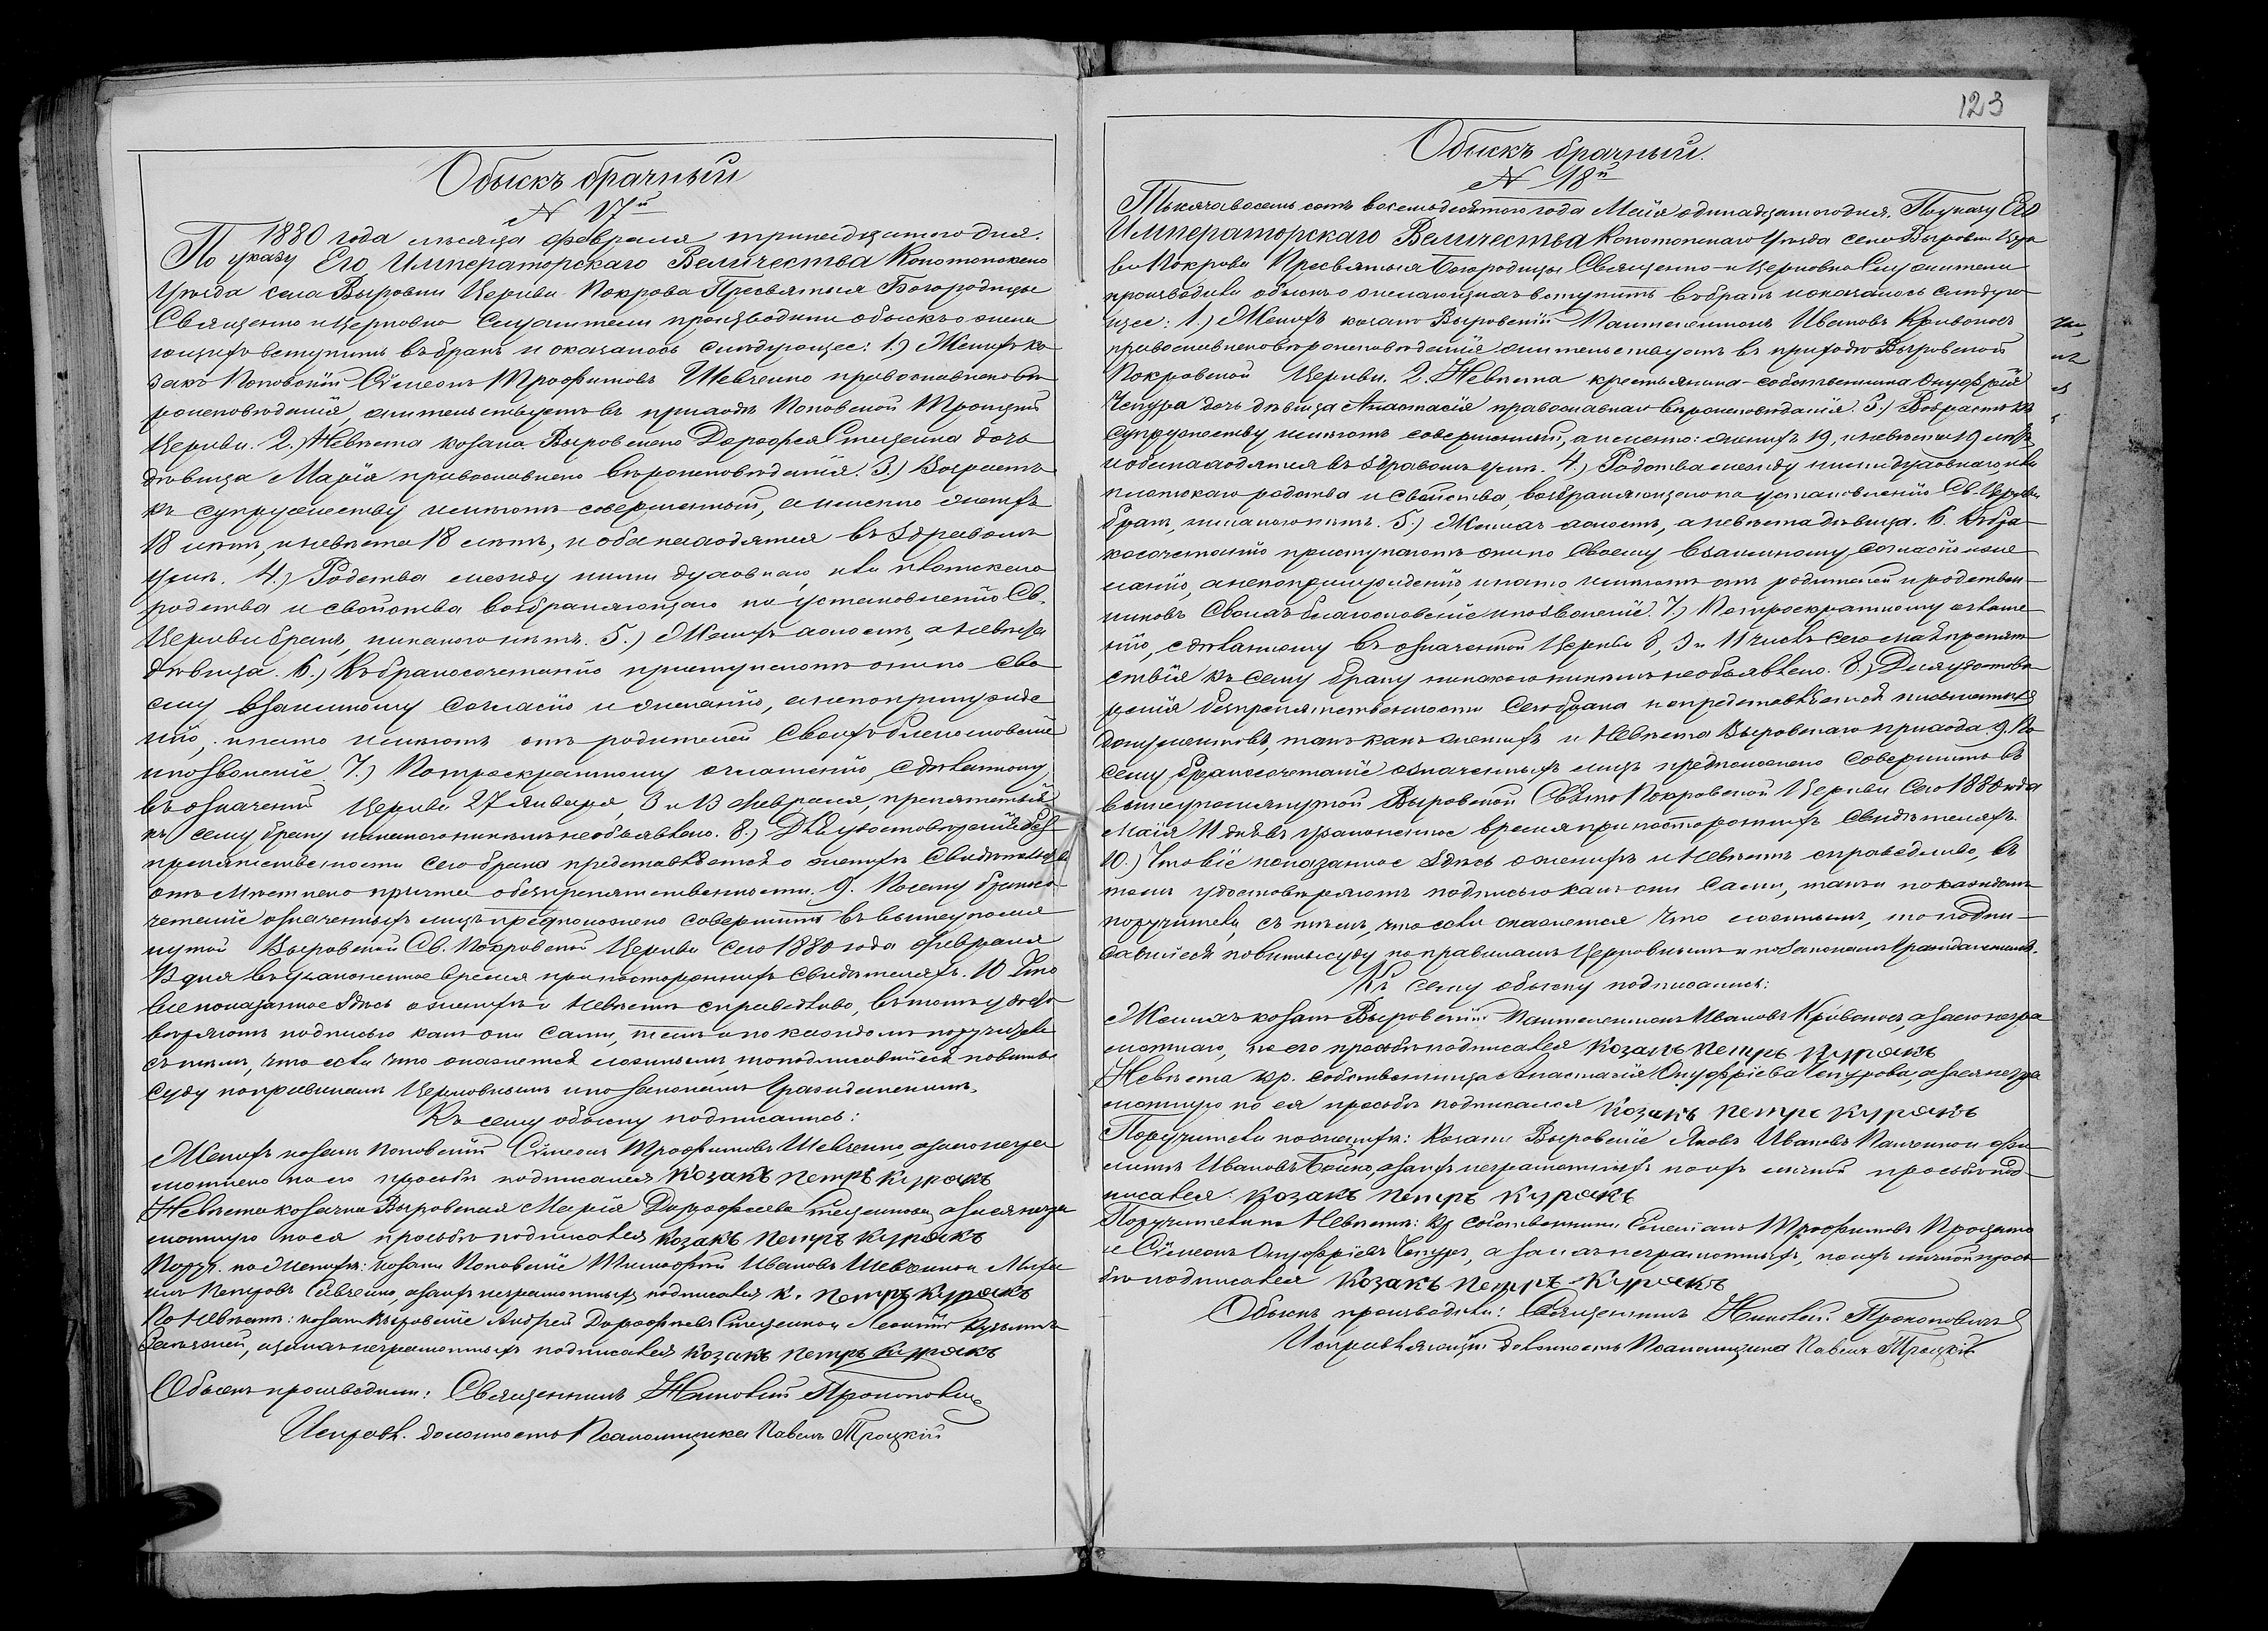 Обыскъ брачный
N 17й
1880 года мѣсяца февраля тринадцатого дня.
По указу Его Императорскаго Величества Конотопскаго
Уѣзда села Выровки Церкви Покрова Пресвятыя Богородицы
Священно и церковно служители производили обыскъ о жела
ющихъ вступить въ бракъ и оказалось слѣдующее: 1.) Женихъ ко
закъ Поповскій Сімеонъ Трофимовъ Шевченко православнаго вѣ
роисповѣданія, жительствуетъ въ приходѣ Поповской Троицкой
Церкви. 2.) Невѣста козака Выровскаго Дорофея дочь
дѣвица Марія православнаго вѣроисповѣданія. 3.) Возрастъ
къ супружеству имѣютъ совершенный, а именно женихъ
18 лѣтъ, и невѣста 18 лѣтъ, и оба находятся въ здравомъ
умѣ. 4.) Родства между ними духовнаго, или плотскаго
родства и свойства возбраняющаго по установленію Св.
Церкви бракъ, никакого нѣтъ. 5.) Женихъ холостъ, а невѣста
дѣвица. 6.) Къ бракосочетанію приступаютъ они по сво
ему взаимному согласію и желанію, а не по принужде
нію, и на то имѣютъ отъ родителей своихъ благословеніе
и позволеніе. 7.) По троекратному оглашенію, сдѣланному
въ означенной Церкви 27 Января, 3 и 13 февраля, препятствій
къ сему браку никакого никѣмъ не объявлено. 8.) Для удостовѣренія без
препятственности сего брака представляется о женихѣ Свидѣтельство
отъ Мѣстнаго причта о безпрепятственности. 9. Посему бракосо
четаніе означенныхъ лицъ предположено совершить въ вышеупомя
нутой Выровской Св. Покровской Церкви сего 1880 года февраля
13 дня въ узаконенное время при постороннихъ свидѣтеляхъ. 10 Что
все показанное здѣсь о женихѣ и невѣстѣ справедливо, въ томъ удосто
вѣряютъ подписью какъ они сами, такъ и по каждомъ поручители
съ тѣмъ, что если что окажется ложнымъ, то подписавшіеся повинны
суду по правиламъ Церковнымъ и по законамъ Гражданскимъ.
Къ сему обыску подписались:
Женихъ козакъ Поповскій Сімеонъ Трофимовъ Шевченко, а за него негра
мотнаго по его просьбѣ подписался Козакъ Петръ Курякъ
Невѣста козачка Выровская Марія Дорофеева а за нея негра
мотную по ея просьбѣ подписался Козакъ Петръ Курякъ
Поруч. по Женихѣ: козаки Поповскіе Тимофій Ивановъ Шевченко и
Петровъ за нихъ неграмотныхъ подписался К. Петръ Курякъ
По Невѣстѣ: козаки Выровскіе Андрей Дорофіевъ и
а за нихъ неграмотныхъ подписался Козакъ Петръ Курякъ
Обыскъ производили: Священникъ Прокоповичъ
Исправл. должность Псаломщика Павелъ Троцкій
123
Обыскъ брачный.
N 18й
Тысяча восемь сотъ восемьдесятого года Маія одинадцатого дня. По указу Его
Императорскаго Величества Конотопскаго Уѣзда села Выровки Церк
ви Покрова Пресвятыя Богородицы Священно и церковно Служители
производили обыскъ о желающихъ вступить въ бракъ и оказалось слѣдую
щее: 1.) Женихъ козакъ Выровскій Пантелеимонъ Ивановъ Кривоносъ
православнаго вѣроисповѣданія жительствуетъ въ приходѣ Выровской
Покровской Церкви. 2. Невѣста крестьянина-собственника Онуфрія
Чепура дочь дѣвица Анастасія православнаго вѣроисповѣданія. 3.) Возрастъ къ
супружеству имѣютъ совершенный, а именно: женихъ 19, и невѣста 19 лѣтъ
и оба находятся въ здравомъ умѣ. 4.) Родства между ними духовнаго, или
плотскаго родства и свойства, возбраняющаго по установленію Св. Церкви
бракъ, никакого нѣтъ. 5.) Женихъ холостъ, а невѣста дѣвица. 6. Къ бра
косочетанію приступаютъ они по своему взаимному согласію и же
ланію, а не по принужденію, и на то имѣютъ отъ родителей и родствен
никовъ своихъ благословеніе и позволеніе. 7.) По троекратному оглаше
нію, сдѣланному въ означенной Церкви 8, 9 и 11 числъ сего мая препят
ствія къ сему браку никакого никѣмъ не объявлено. 8.) Для удостовѣ
ренія безпрепятственности сего брака не представляется письменныхъ
документовъ, такъ какъ женихъ и невѣста Выровскаго прихода. 9. По
сему бракосочетаніе означенныхъ лицъ предположено совершить въ
вышеупомянутой Выровской Свято Покровской Церкви сего 1880 года
Маія 11 дня въ узаконенное время при постороннихъ свидѣтеляхъ.
10.) Что все показанное здѣсь о женихѣ и невѣстѣ справедливо, въ
томъ удостовѣряютъ подписью какъ они сами, такъ и по каждомъ
поручители, съ тѣмъ, что если окажется что ложнымъ, то подпи-
савшіеся повинны суду по правиламъ Церковнымъ и по законамъ Гражданскимъ.
Къ сему обыску подписались:
Женихъ козакъ Выровскій Пантелеимонъ Ивановъ Кривоносъ, а за него негра
мотнаго, по его просьбѣ подписался Козакъ Петръ Курякъ
Невѣста кр. собственница Анастасія Онуфріева Чепурова, а за нея негра
мотную по ея просьбѣ подписался Козакъ Петръ Курякъ
Поручители по женихѣ: Козаки Выровскіе Яковъ Ивановъ и Фи
липъ Ивановъ Бойко, а за нихъ неграмотныхъ по ихъ личной просьбѣ под
писался: Козакъ Петръ Курякъ
Поручители по Невѣстѣ: кр собственники Емеліанъ Трофимовъ Проценко
и Сімеонъ Онуфріевъ Чепуръ, а за нихъ неграмотныхъ, по ихъ личной прось
бѣ подписался Козакъ Петръ Курякъ
Обыскъ производили: Священникъ Прокоповичъ
Исправляющій должность Псаломщика Павелъ Троцкій